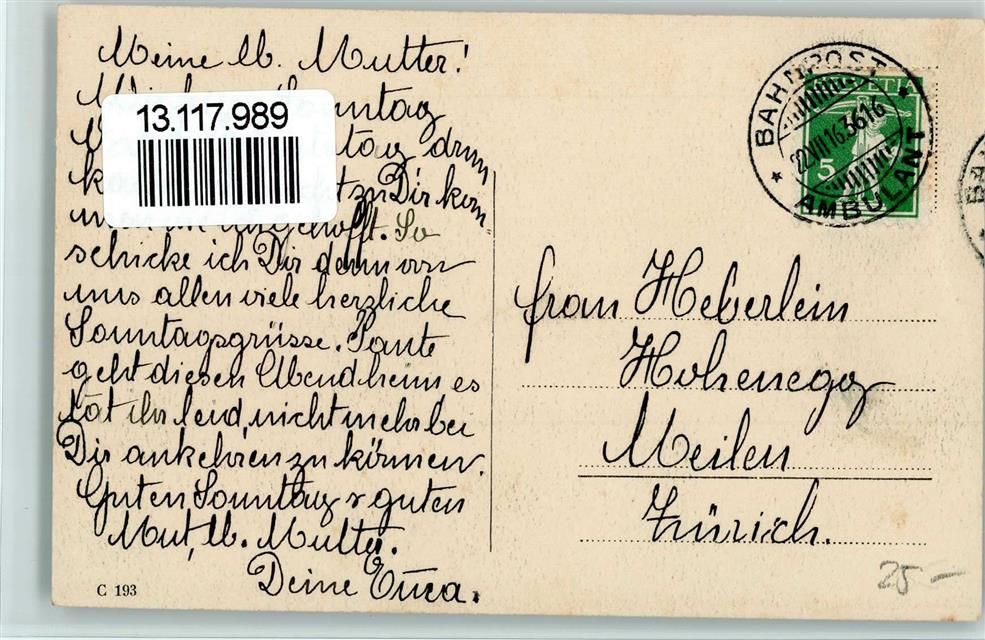 Meine lb. Mutter!
13.117.989
Sonntag
tag drum
zu Dir kom
ungehofft. So
schicke ich Dir denn von
uns allen viele herzliche
Sonntagsgrüsse. Tante
geht diesen Abend heim, es
tät ihr leid, nicht mehr bei
Dir ankehren zu können.
Guten Sonntag & guten
Mut, lb. Mutter.
Deine
C 193
BAHNPOST
HELVETIA
22.VII.16.3616
5
AMBULANT
Frau Heberlein
Hohenegg
Meilen
Zürich.
25 —